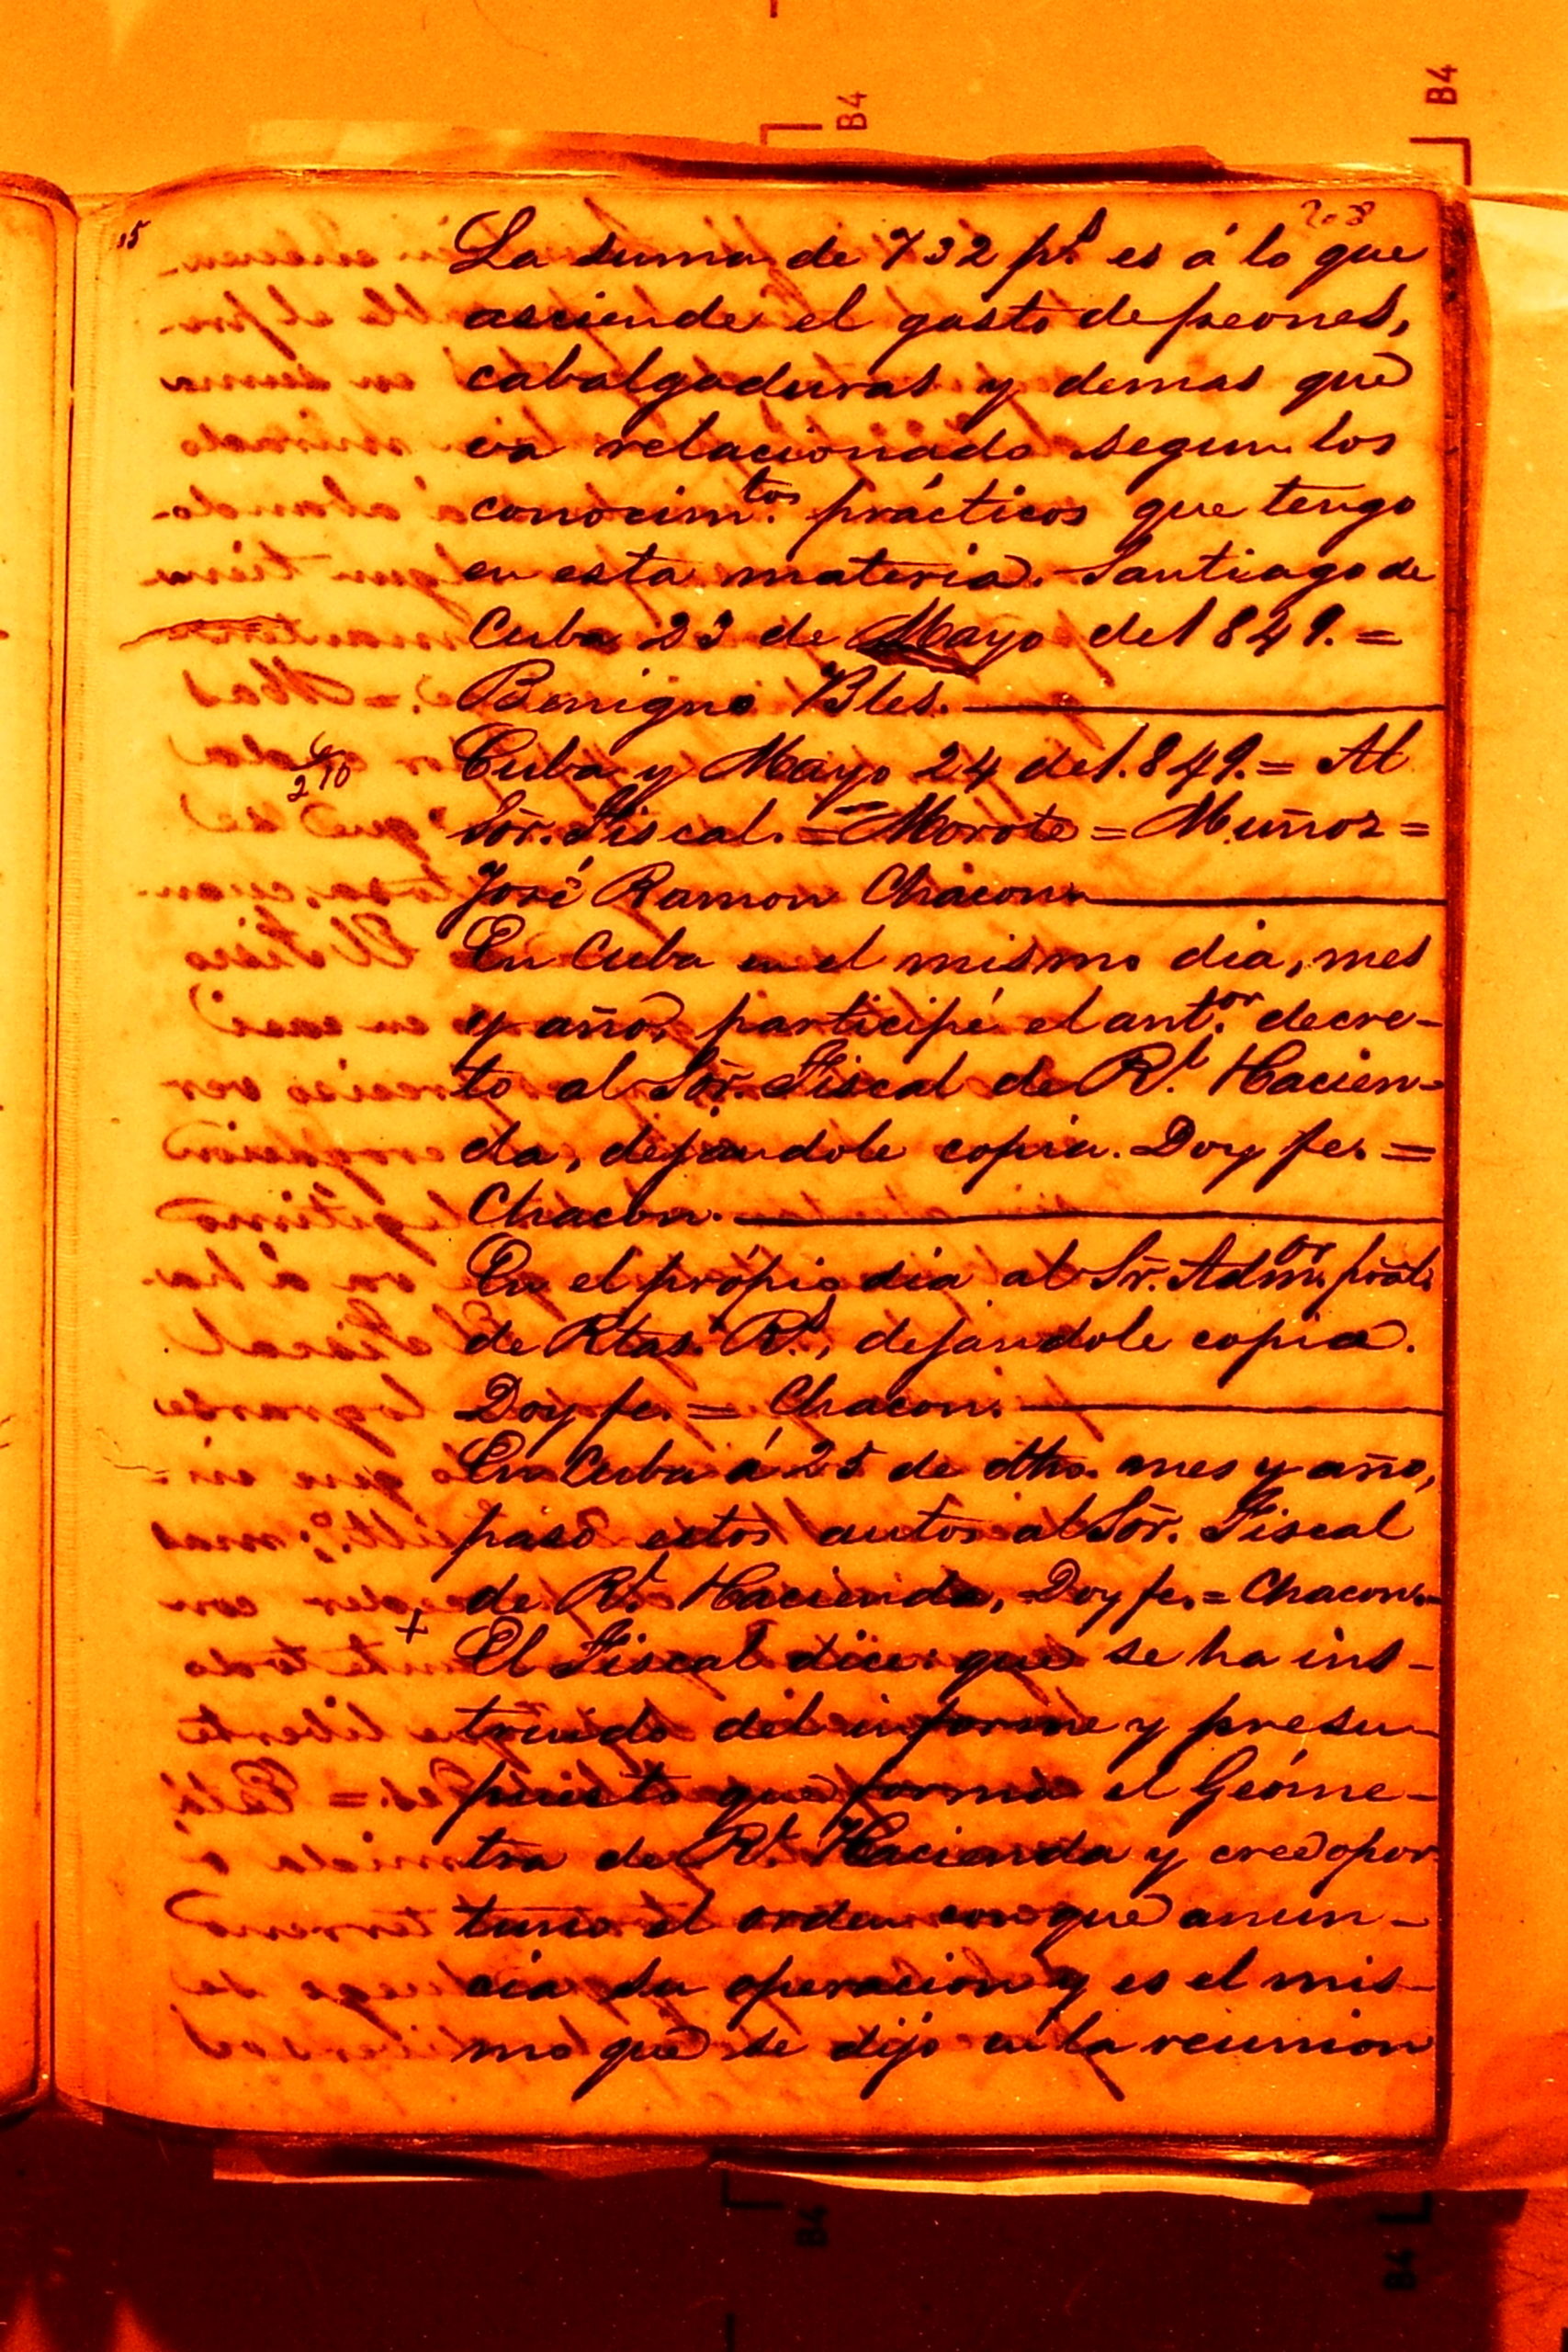 B4
B4
208
15
La suma de 732 p.s es á lo que
asciende el gasto de peones,
cabalgaduras y demas que
va relacionado segun los
conocim.tos prácticos que tengo
en esta materia. Santiago de
Cuba 23 de Mayo de 1849. =
Benigno Bles.
Cuba y Mayo 24 de 1.849. = Al
Sõr. Fiscal. = Morote = Muñoz =
José Ramon Chacon.
En Cuba en el mismo dia, mes
y año, participé el ant.or decre-
to al Sõr. Fiscal de R.l Hacien-
da, dejandole copia. Doy fe. =
Chacon.
En el própio dia al Sr. Adm.or prãl.
de Rtas. R.s, dejandole copia.
Doy fe. = Chacon.
En Cuba á 25 de dho. mes y año,
pasó estos autos al Sõr. Fiscal
de R.l Hacienda, Doy fe. = Chacon. =
+
El Fiscal dice: que se ha ins-
truido del informe y presu-
puesto que forma el Geóme-
tra de R.l Hacienda y cree opor
tuno el orden con que anun-
cia su operacion y es el mis-
mo que se dijo en la reunion
B4
B4